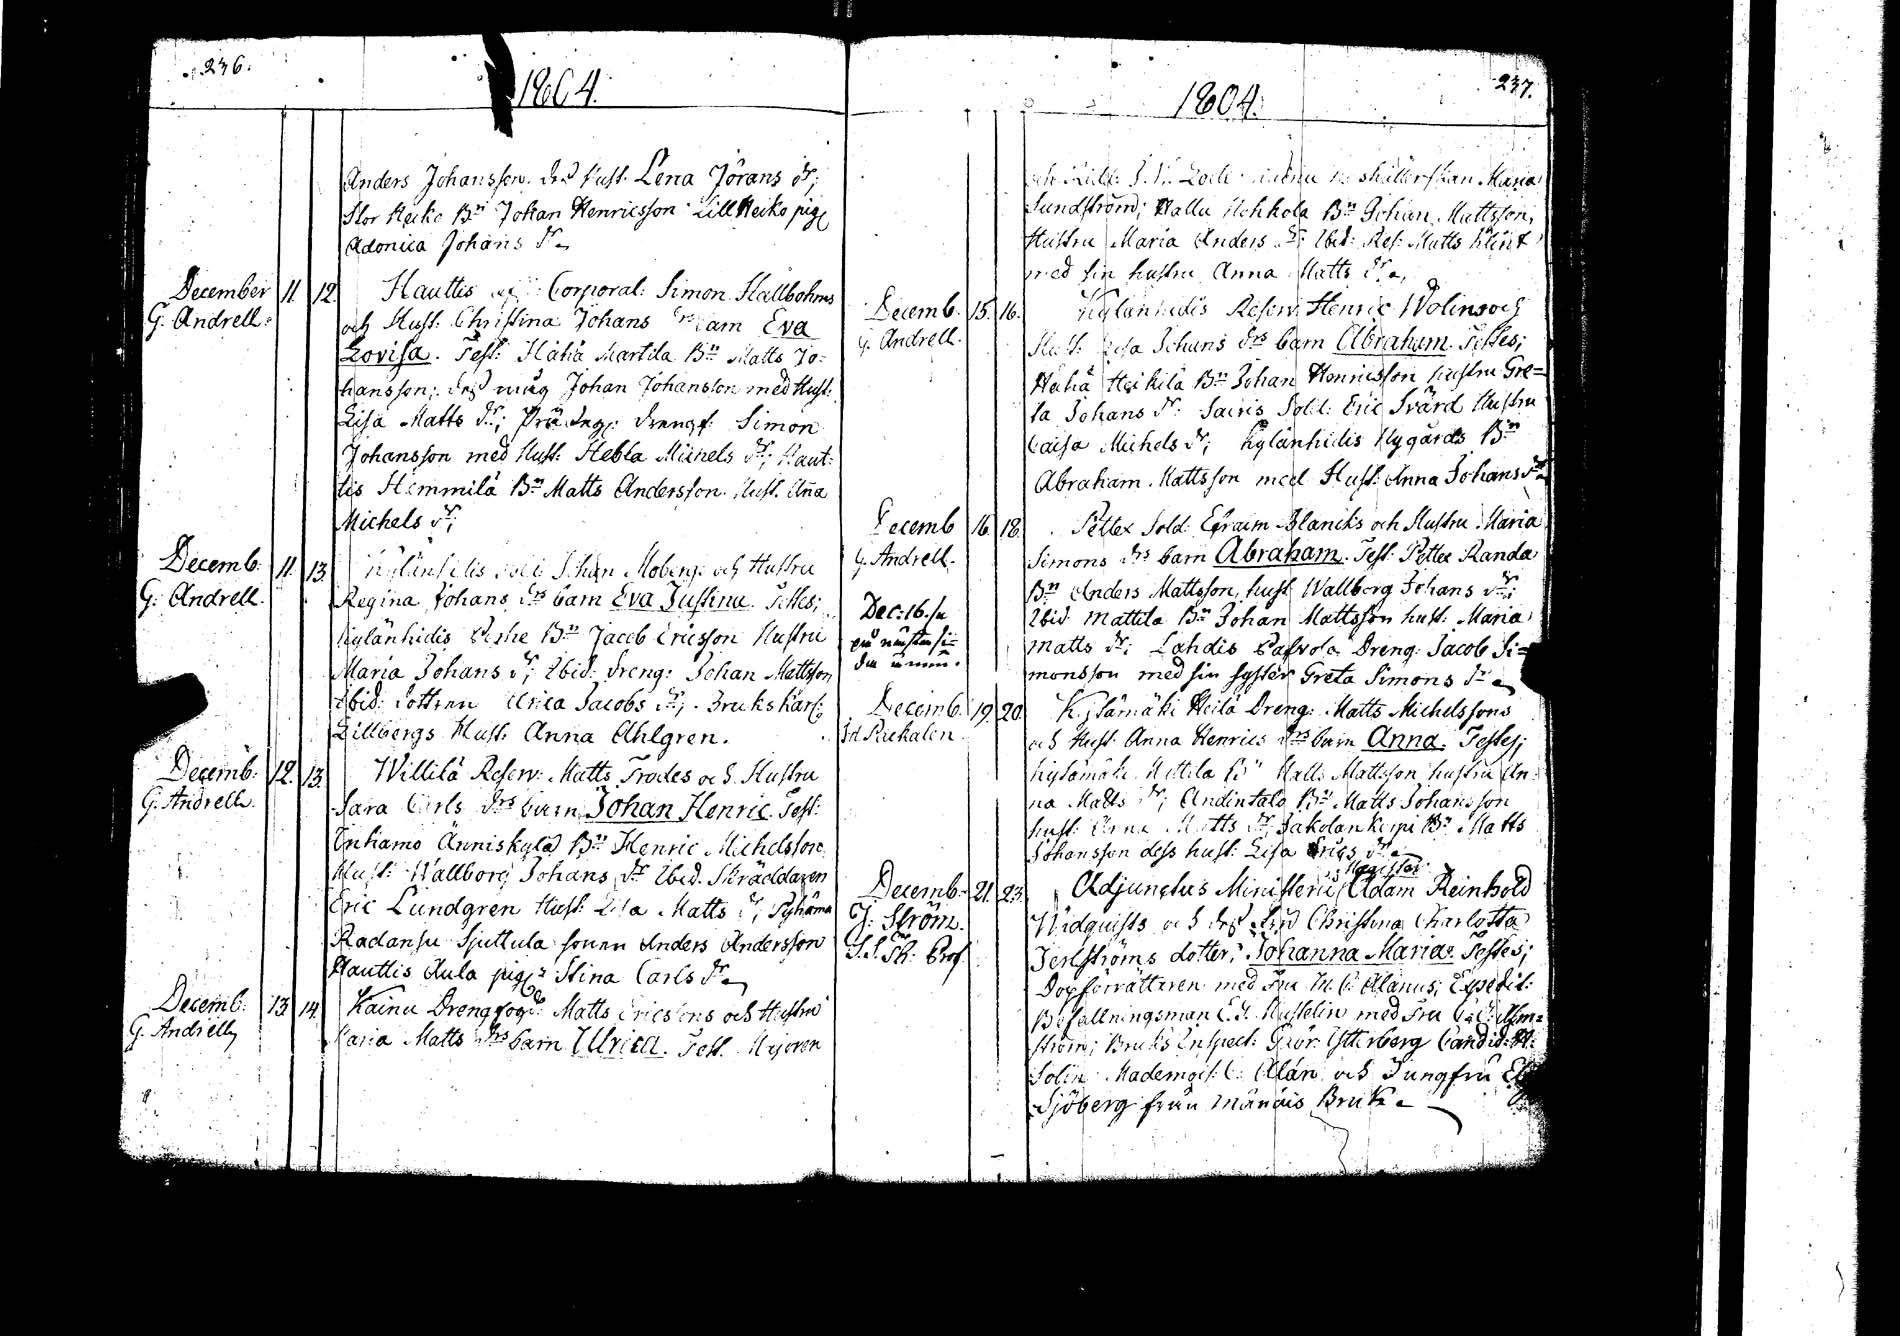 236.
1804.
Anders Johansson. dess Hust. Lena Jörans dr;
Stor Heiko Bn Johan Henricsson Lill Heiko pig:
Adonica Johans dr
December 11. 12. Hauttis Corporal: Simon Hallbohms
G. Andrell. och Hust. Christina Johans drs barn Eva
Lovisa. Test: Haha Martila Bn Matts Jo-
hansson; dess måg Johan Johansson med Hust:
Lisa Matts dr; drengf: Simon
Johansson med Hust. Hebla Michels dr; Haut-
tis Hemmilä Bn Matts Andersson. Hust. Aña
Michels dr;
Decemb. 11. 13. Kylänhidis Johan Mobergs och Hustru
G. Andrell. Regina Johans drs barn Eva Justina. Testes;
Kylänhidis Bn Jacob Ericsson Hustru
Maria Johans dr; Ibid: dreng: Johan Mattsson
Ibid: dottren Ulrica Jacobs dr; Bruks karl:
Lillbergs Hust. Anna Ahlgren.
Decemb. 12. 13. Willilä Reserv: Matts Trodes och Hustru
G. Andrell. Sara Carls drs barn Johan Henric. Test:
Enhamo Änniskälä Bn Henric Michelsson
Hust: Wallborg Johans dr Ibid. Skräddaren
Eric Lundgren Hust: Lisa Matts dr; Pyhämä
Radansu Sjuttula sonen Anders Andersson
Hauttis Aula pig: Stina Carls dr
Decemb. 13. 14. Kainu Drengfogd: Matts Ericssons och Hustru
G. Andrell Maria Matts drs barn Ulrica. Test.
237.
1804.
Maria
Sundström; Hallu Uhkola Bn Johan Mattsson,
Hustru Maria Anders dr; Ibid: Res: Matts Klint
med sin hustru Anna Matts dr
Decemb. 15. 16. Kylänhidis Reserv. Henric Wolins och
G. Andrell. Hust: Lisa Johans drs barn Abraham. Testes;
Haha Heikilä Bn Johan Henricsson hustru Gre-
ta Johans dr. Sairis Sold: Eric Svärd Hustru
Caisa Michels dr; Kylänhidis Nygårds Bn
Abraham Mattsson med Hust: Anna Johans dr
Decemb 16. 18. Pettex Sold: Efraim Blanks och Hustru Maria
G. Andrell. Simons drs barn Abraham. Test: Pettex Randa
Bn Anders Mattsson, hust Wallborg Johans dr;
Dec: 16. se
på nästa si-
da
Ibid Mattila Bn Johan Mattsson hust: Maria
Matts dr; Lahdis Pafvola Dreng: Jacob Si-
monsson med sin syster Greta Simons dr
Decemb. 19. 20. Kylämäki Heilä Dreng: Matts Michelssons
och Hust: Anna Henrics drs barn Anna. Testes;
Kylämäki Mattila Bn Matts Mattsson hustru An-
na Matts dr; Andintalo Bn Matts Johansson
hust: Anna Matts dr; Bn Matts
Johansson dess hust: Lisa Erics dr
Decemb. 21. 23. Adjunctus Ministerii Magister Adam Reinhold
J. Ström. Widquists och dess Christina Charlotta
Jerlströms dotter; Johanna Maria. Testes;
Dopförrättaren med Fru M. C. Alanus; Expedit:
Befallningsman C. J. Husselin med Fru
ström; Bruks Inspect: Österberg
Solin Mademois: C. Alán och Jungfru
Sjöberg från Bruk